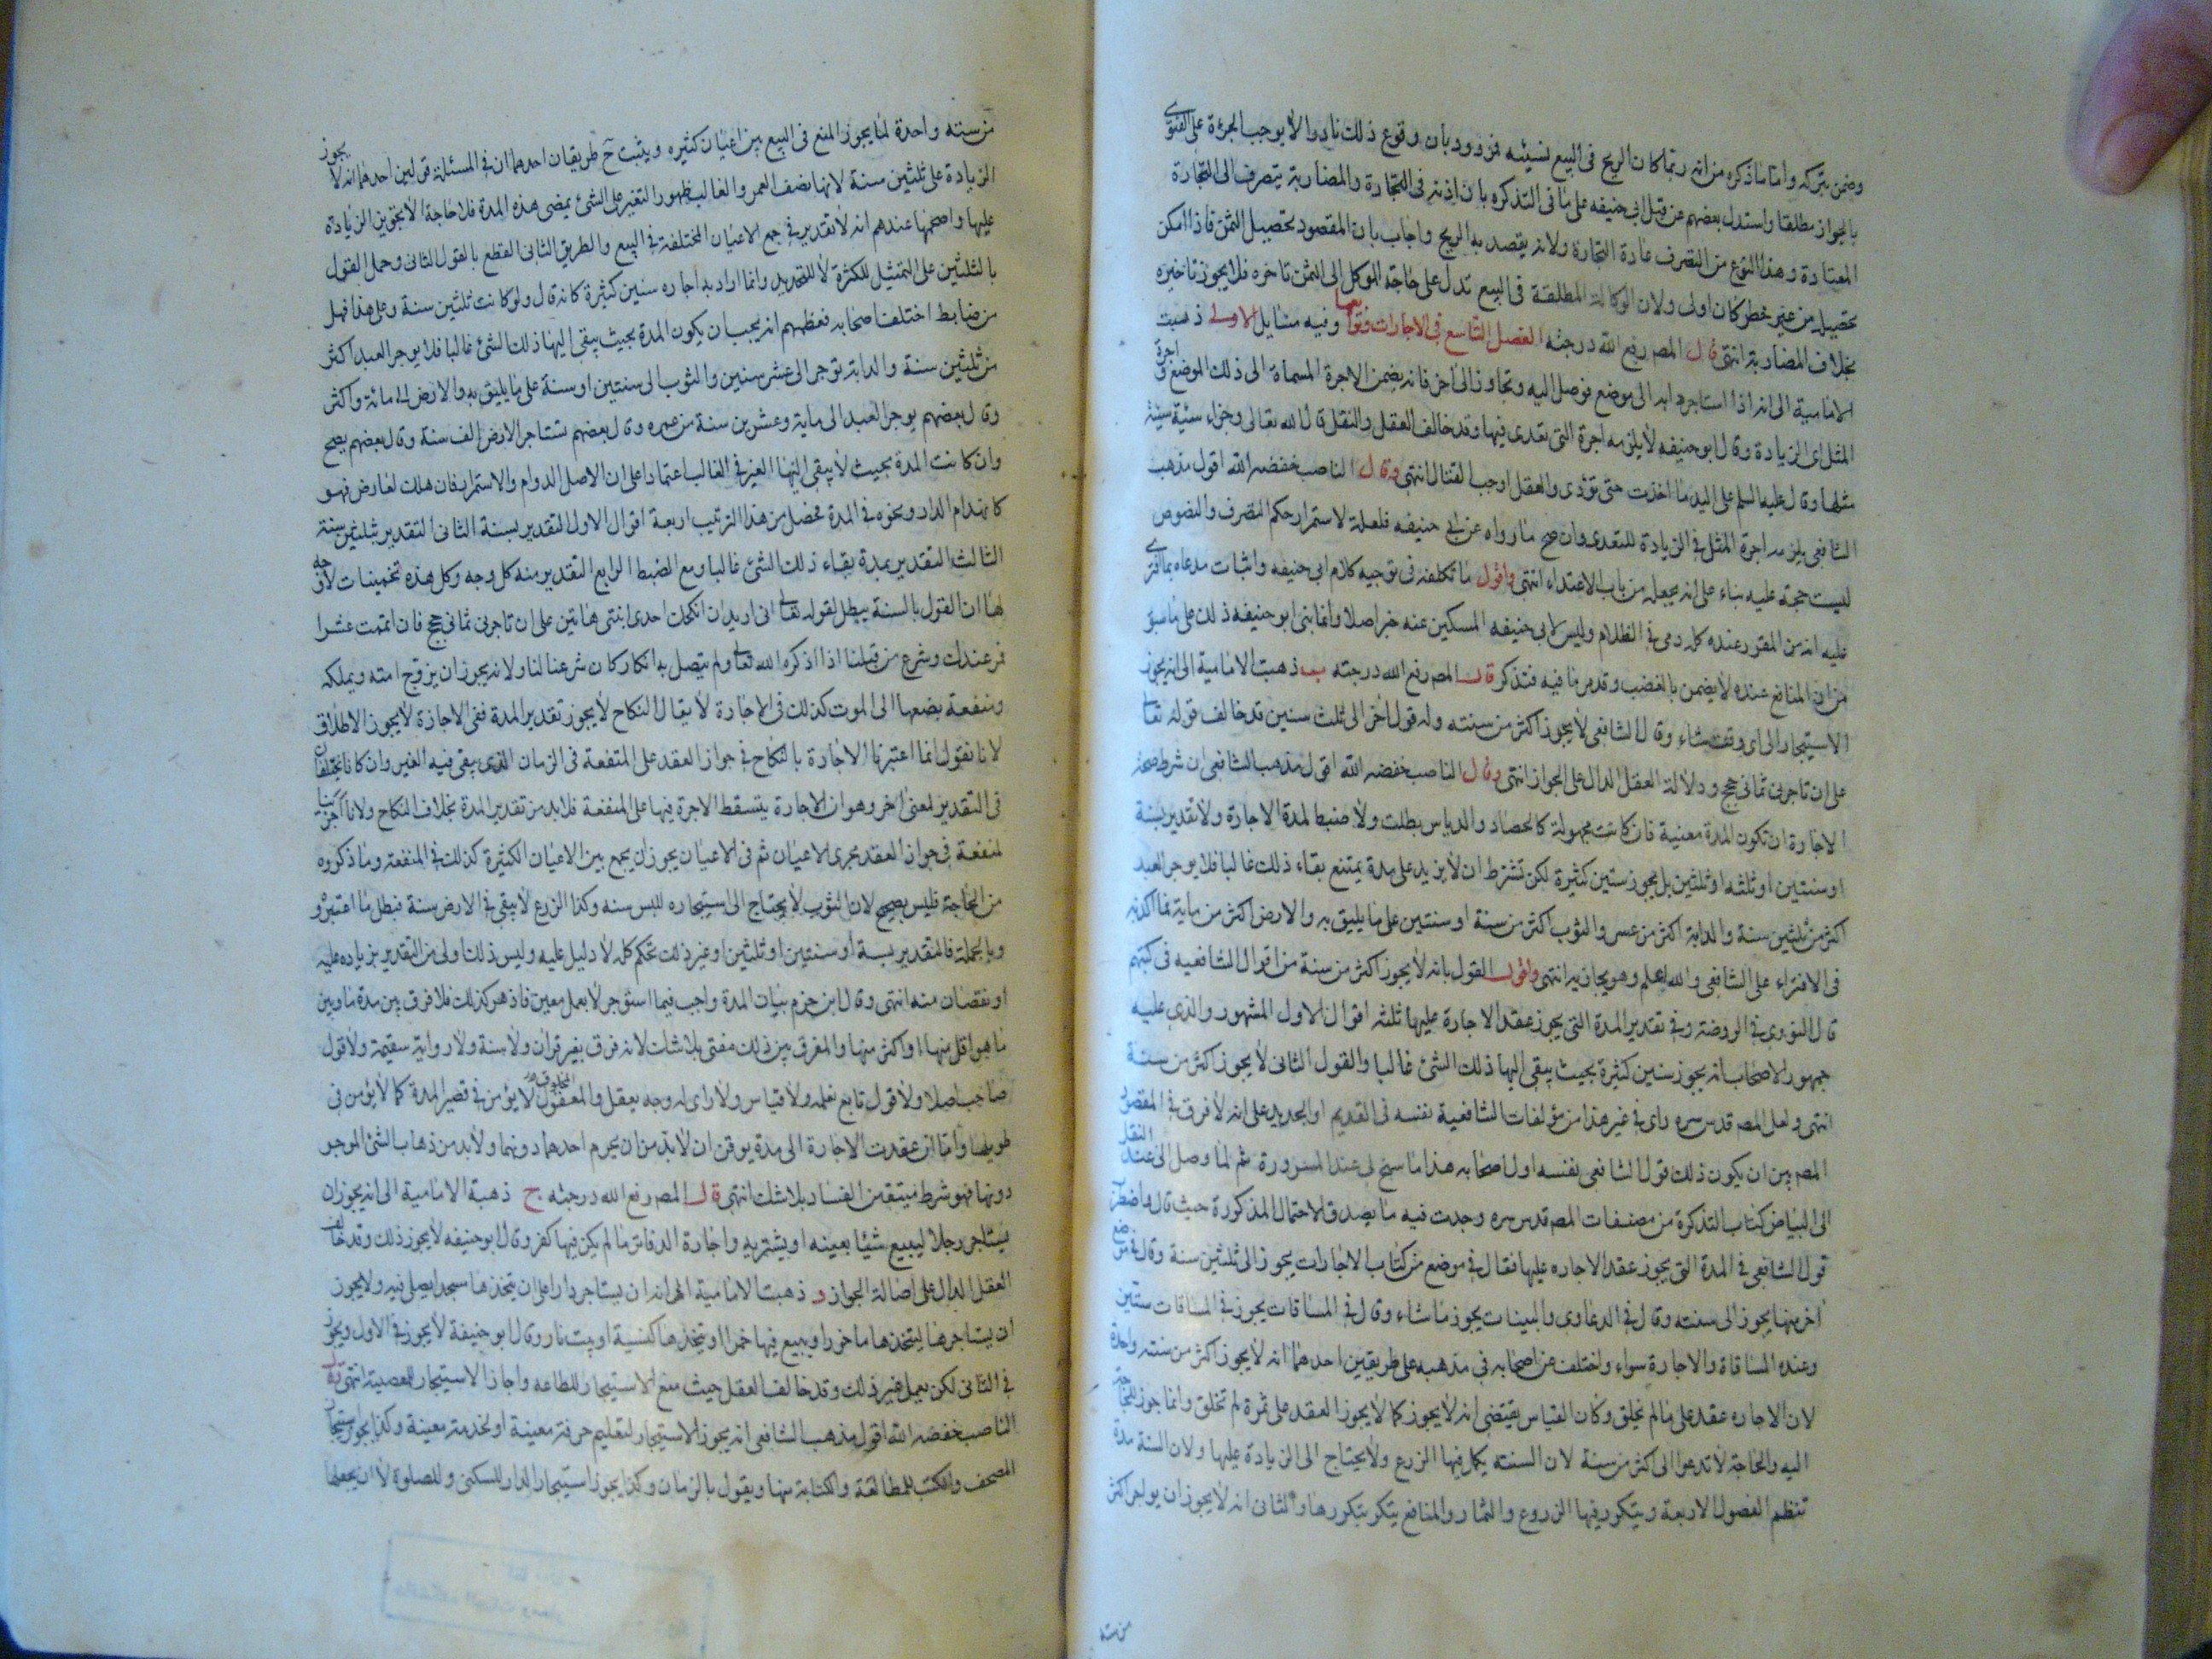 وضمن بتركه واما ما ذكره من انه ربما كان الربح فى البيع نسيئه فمردود بان وقوع ذلك نادرا لا يوجب الجرءة على الفتوى
بالجواز مطلقا واستدل بعضهم عن قبل ابى حنيفه على ما فى التذكره بان اذنه فى التجارة والمضاربة يتصرف الى التجارة
المعتادة وهذا النوع من التصرف عادة التجارة ولانه يقصد به الربح واجاب بان المقصود تحصيل الثمن فاذا امكن
تحصيله من غير خطر كان اولى ولان الوكالة المطلقة فى البيع تدل على حاجة الموكل الى الثمن تاخره فلا يجوز تاخيره
بخلاف المضاربة انتهى قال المصم رفع الله درجته الفصل التاسع فى الاجارات وتوابعها وفيه مسايل الاولى ذهبت
الامامية الى انه اذا استاجر دابه الى موضع فوصل اليه وتجاوز الى اخر فانه يضمن الاجرة المسماة الى ذلك الموضع و اجرة
المثل فى الزيادة وقال ابو حنيفه لا يلزمه اجرة التى تعدى فيها وقد خالف العقل والنقل قال الله تعالى وجزاء سيئة سيئة
مثلها وقال عليه السلم على اليد ما اخذت حتى تؤدى والعقل اوجب القتال انتهى وقال الناصب خفضه الله اقول مذهب
الشافعى يلزمه اجرة المثل فى الزيادة للتعدى وان صح ما رواه عن ابى حنيفه فلعله لاستمرار حكم التصرف والنصوص
ليست حجة عليه بناء على انه يجعله من باب الاعتداء انتهى واقول ما تكلفه فى توجيه كلام ابى حنيفه واثبات مدعاه بما افترى
عليه انه من المقرر عنده كله رمى فى الظلام وليس لابى حنيفه المسكين عنه خبر اصلا وانما بنى ابو حنيفه ذلك على ما سبق
من ان المنافع عنده لا يضمن بالغصب وقد مر ما فيه فتذكر قال المصم رفع الله درجته ب ذهبت الامامية الى انه يجوز
الاستيجار الى اى وقت شاء وقال الشافعى لا يجوز اكثر من سنته وله قول اخر الى ثلث سنين وقد خالف قوله تعالى
على ان تاجرنى ثمانى حجج ودلالة العقل الدال على الجواز انتهى وقال الناصب خفضه الله اقول مذهب الشافعى ان شرط صحة
الاجارة ان تكون المدة معينة فان كانت مجهولة كالحصاد والدياس بطلت ولا ضبط لمدة الاجارة ولا تقدير بسنة
او سنتين او ثلثه او ثلثين بل يجوز سنين كثيرة لكن تشترط ان لا يزيد على مدة يمتنع بقاء ذلك غالبا فلا يوجر العبد
اكثر من ثلثين سنة والدابة اكثر من عشر والثوب اكثر من سنة او سنتين على ما يليق به والارض اكثر من ماية فما اكذبه
فى الافتراء على الشافعى والله اعلم وهو يجازيه انتهى واقول القول بانه لا يجوز اكثر من سنة من اقوال الشافعيه فى كتبهم
قال النووى فى الروضة وفى تقدير المدة التى يجوز عقد الاجارة عليها ثلثه اقوال الاول المشهور والذى عليه
جمهور الاصحاب انه يجوز سنين كثيرة بحيث يبقى اليها ذلك الشئ غالبا والقول الثانى لا يجوز اكثر من سنة
انتهى ولعل المصم قدس سره راى فى غير هذا من مؤلفات الشافعية نفسه فى القديم او الجديد على انه لا فرق فى المقصود
المصم بين ان يكون ذلك قول الشافعى نفسه او لاصحابه هذا ما سنح لى عند المسرورة ثم لما وصل الى عند النقل
الى البياض كتاب التذكرة من مصنفات المصم قدس سره وجدت فيه ما يصدق الاحتمال المذكورة حيث قال واضطرب
قول الشافعى فى المدة التى يجوز عقد الاجاره عليها فقال فى موضع من كتاب الاجارات يجوز الى ثلثين سنة وقال فى موضع
اخر منها يجوز الى سنته وقال فى الدعاوى والبينات يجوز ما شاء وقال فى المساقات يجوز فى المساقات ستين
وعنده المساقاة والاجارة سواء واختلف عن اصحابه فى مذهبه على طريقين احدهما انه لا يجوز اكثر من سنته واحدة
لان الاجاره عقد على ما لم يخلق وكان القياس يقتضى انه لا يجوز كما لا يجوز العقد على ثمرة لم تخلق وانما جوز للحاجة
اليه والحاجة لا تدعوا الى اكثر من سنة لان السنته يكمل فيها الزرع ولا يحتاج الى الزيادة عليها ولان السنة مدة
تنتظم الفصول الاربعة ويتكرر فيها الزروع والثمار والمنافع يتكرر بتكررها والثانى انه لا يجوز ان يواجر اكثر
من سنته
من سنته واحدة لما يجوز المنع فى البيع بين اعيان كثيره ويثبت ح طريقان احدهما ان فى المسئلة قولين احدهما انه لا يجوز
الزيادة على ثلثين سنة لانها نصف العمر والغالب ظهور التغير على الشئ بمضى هذه المدة فلا حاجة الا تجويز الزيادة
عليها واصحهما عندهم انه لا تقدير فى جمع الاعيان المختلفة فى البيع والطريق الثانى القطع بالقول الثانى وحمل القول
بالثلثين على التمثيل للكثرة لا للتحديد وانما اراد به اجاره سنين كثيرة كانه قال ولو كانت ثلثين سنة وعلى هذا فهل
من ضابط اختلف اصحابه فعظمهم انه يجب ان يكون المدة بحيث يبقى اليها ذلك الشئ غالبا فلا يوجر العبد اكثر
من ثلثين سنة والدابة توجر الى عشر سنين والثوب الى سنتين او سنة على ما يليق به والارض الى مائة واكثر
وقال بعضهم يوجر العبد الى ماية وعشرين سنة من عمره وقال بعضهم تستاجر الارض الف سنة وقال بعضهم يصح
وان كانت المدة بحيث لا يبقى اليها العين فى الغالب اعتمادا على ان الاصل الدوام والاستمرار فان هلك لعارض فهو
كانهدام الدار ونحوه فى المدة فحصل من هذا الترتيب اربعة اقوال الاول التقدير بسنة الثانى التقدير بثلثين سنة
الثالث التقدير بمدة بقاء ذلك الشئ غالبا ومع الضبط الرابع التقدير منه كل وجه وكل هذه تخمينات لا وجه
لها ان القول بالسنة يبطل لقوله تعالى انى اريد ان انكحك احدى ابنتى هاتين على ان تاجرنى ثمانى حجج فان اتممت عشرا
فمن عندك وشرع من قبلنا اذا اذكره الله تعالى ولم يتصل به انكار كان شرعنا لنا ولانه يجوز ان يزوج امته ويملكه
ومنفعة بضعها الى الموت كذلك فى الاجارة لا يقال النكاح لا يجوز تقدير المدة ففى الاجازة لا يجوز الاطلاق
لانا نقول انما اعتبرنا الاجارة بالنكاح فى جواز العقد على المنفعة فى الزمان الذى يبقى فيه الغير وان كانا يختلفان
فى التقدير لمعنى اخر وهو ان الاجارة يتسقط الاجرة فيها على المنفعة فلا بد من تقدير المدة بخلاف النكاح ولانا اجرينا
لمنفعة فى جواز العقد مجرى الاعيان ثم فى الاعيان يجوز ان يجمع بين الاعيان الكثيرة كذلك فى المنفعة وما ذكروه
من الحاجة فليس بصحيح لان الثوب لا يحتاج الى استيجاره للبس سنه وكذا الزرع لا يبقى فى الارض سنة فبطل ما اعتبروه
وبالجملة فالتقدير بسنة او سنتين او ثلثين او غير ذلك تحكم كله لا دليل عليه وليس ذلك اولى من التقدير بزياده عليه
او نقصان منه انتهى وقال ابن حزم بيان المدة واجب فيما استؤجر لا بعمل معين فاذ هو كذلك فلا فرق بين مدة ما وبين
ما هو اقل منها او اكثر منها والمفرق بين ذلك مفتى بلا شك لانه فرق بغير قران ولا سنة ولا رواية سقيمة ولا قول
صاحب اصلا ولا قول تابع نعلمه ولا قياس ولا راى له وجه يعقل والمعقول المخلوق لا يؤمن فى قصير المدة كما لا يؤمن فى
طويلها واما ان عقدت الاجارة الى مدة يوقن ان لا بد من ان يحرم احدهما دونها ولا بد من ذهاب الشئ الموجر
دونها فهو شرط متيقن الفساد بلا شك انتهى قال المصم رفع الله درجته ج ذهبة الامامية الى انه يجوز ان
يستاجر رجلا ليبيع شيئا بعينه او يشتريه واجارة الدفاتر ما لم يكن فيها كفر وقال ابو حنيفه لا يجوز ذلك وقد خالف
العقل الدال على اصالة الجواز د ذهبت الامامية الى انه ان يستاجر دارا على ان يتخذها مسجدا يصلى فيه ولا يجوز
ان يستاجرها ليتخذها ماخورا ويبيع فيها خمرا او يتخذها كنيسة او بيت نار وقال ابو حنيفة لا يجوز فى الاول ويجوز
فى الثانى لكن يعمل غير ذلك وقد خالف العقل حيث منع الاستيجار للطاعه واجاز الاستيجار للمعصية انتهى قال
الناصب خفضه الله اقول مذهب الشافعى انه يجوز الاستيجار لتعليم حرفة معينة او لخدمة معينة وكذا يجوز استيجار
المصحف والكتب للمطالعة والكتابة منها ويقول بالزمان وكذا يجوز استيجار الدار للسكنى وللصلوة لا ان يجعلها